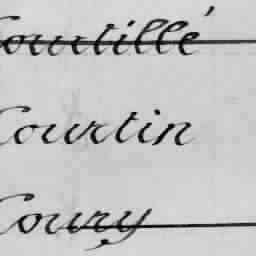 Courtillé
Courtin
Coury